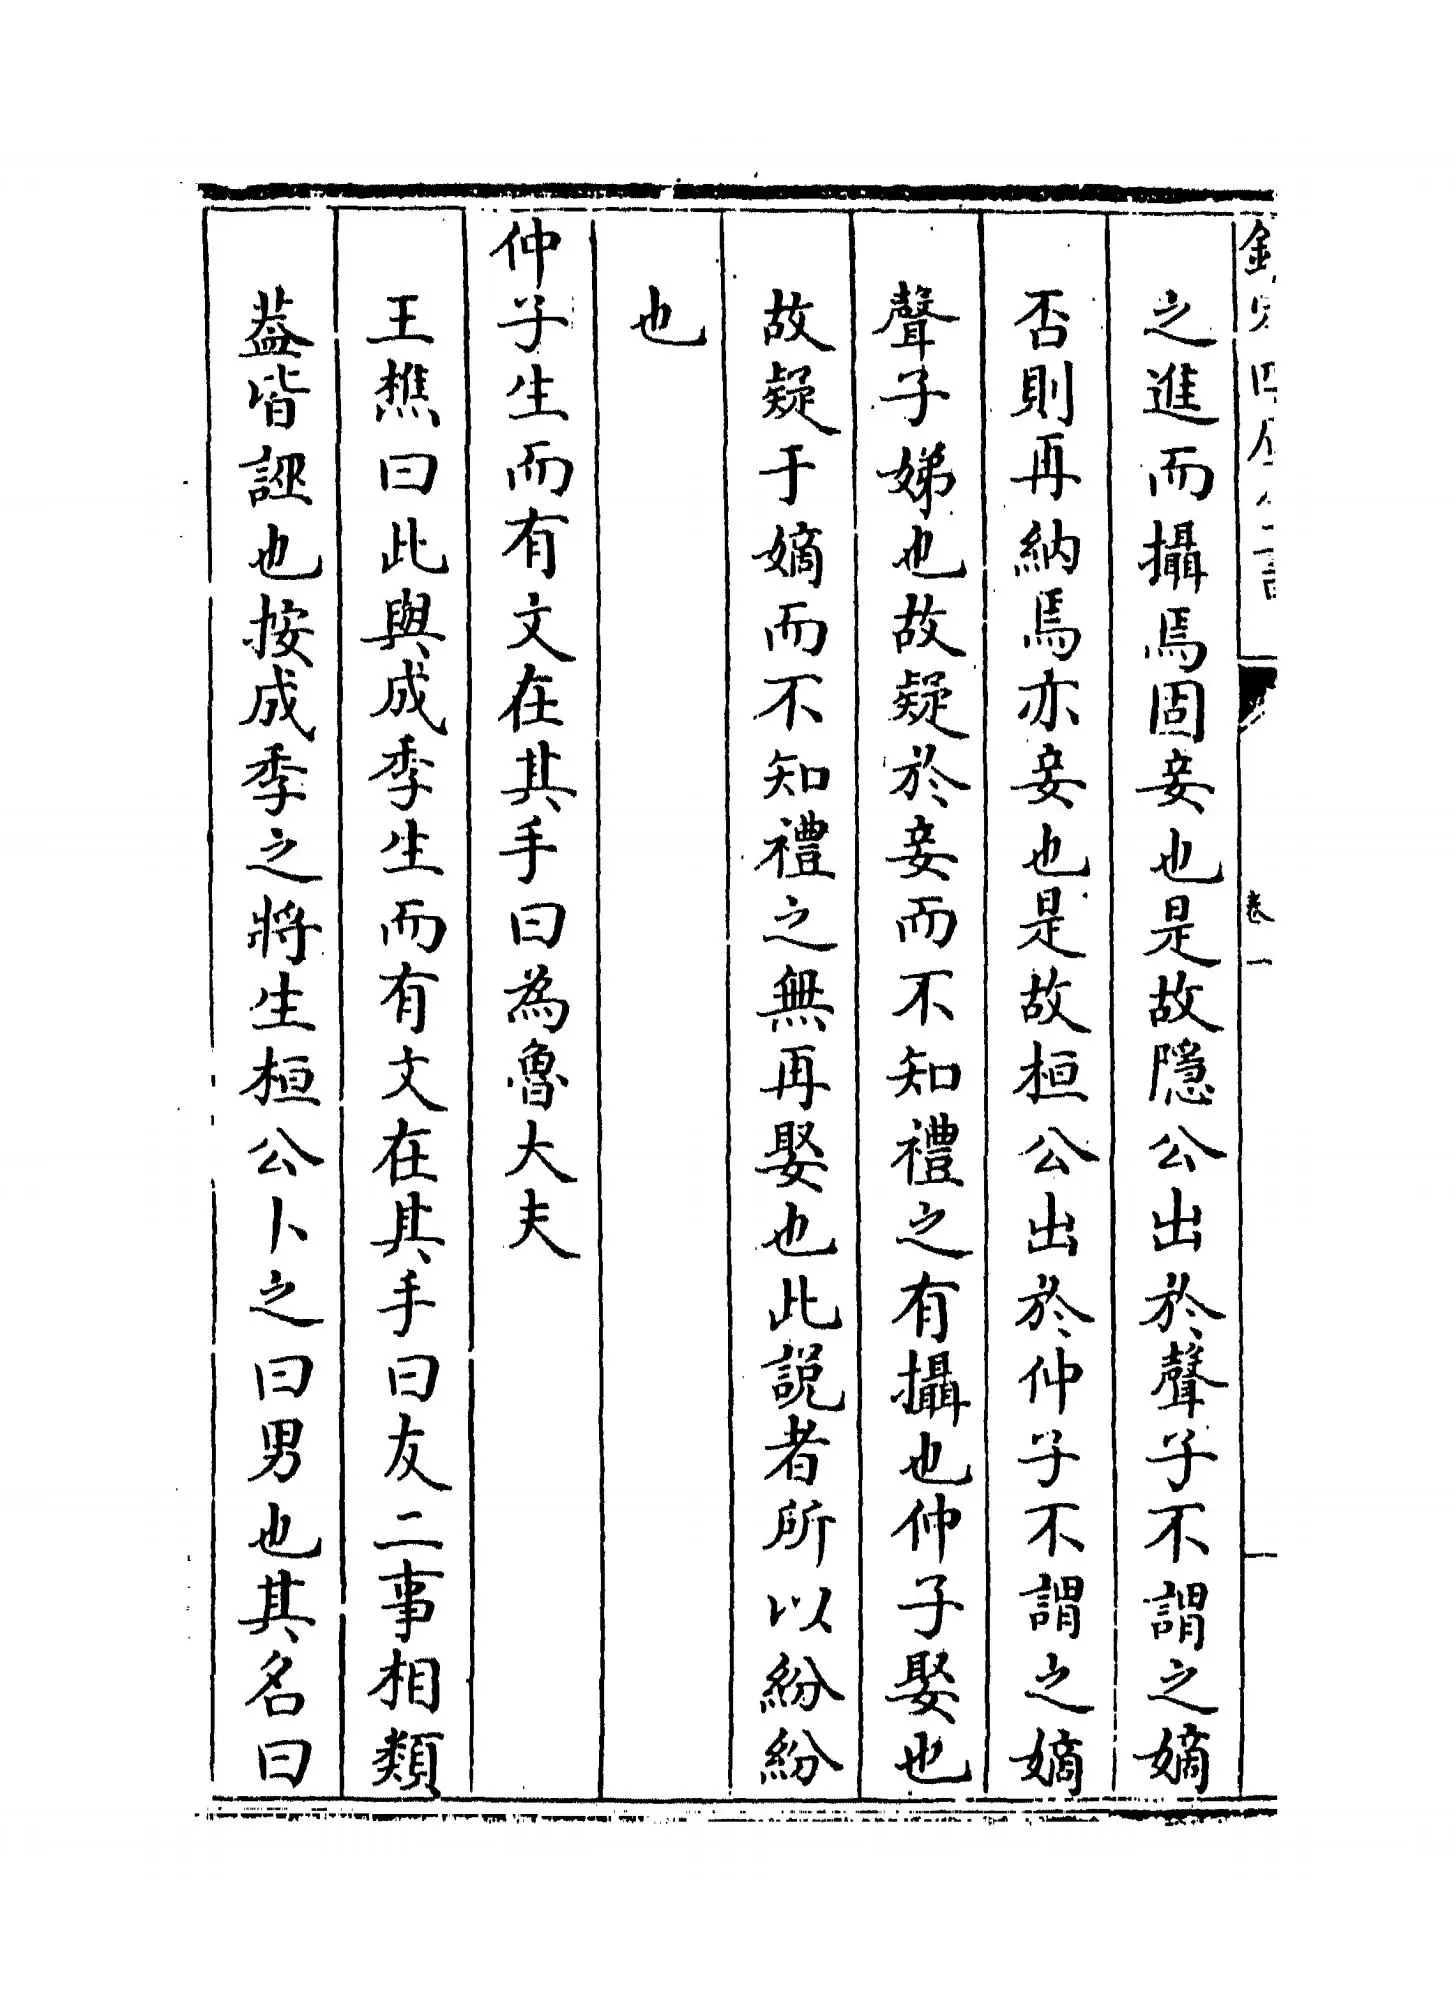 之進而攝焉固妾也是故隱公出於聲子不謂之嫡
否則再納焉亦妾也是故桓公出於仲子不謂之嫡
聲子娣也故疑於妾而不知禮之有攝也仲子娶也
故疑于嫡而不知禮之無再娶也此說者所以紛紛
也
仲子生而有文在其手曰為魯大夫
王樵曰此與成季生而有文在其手曰友二事相類
葢皆誣也按成季之將生桓公卜之曰男也其名曰
卷一